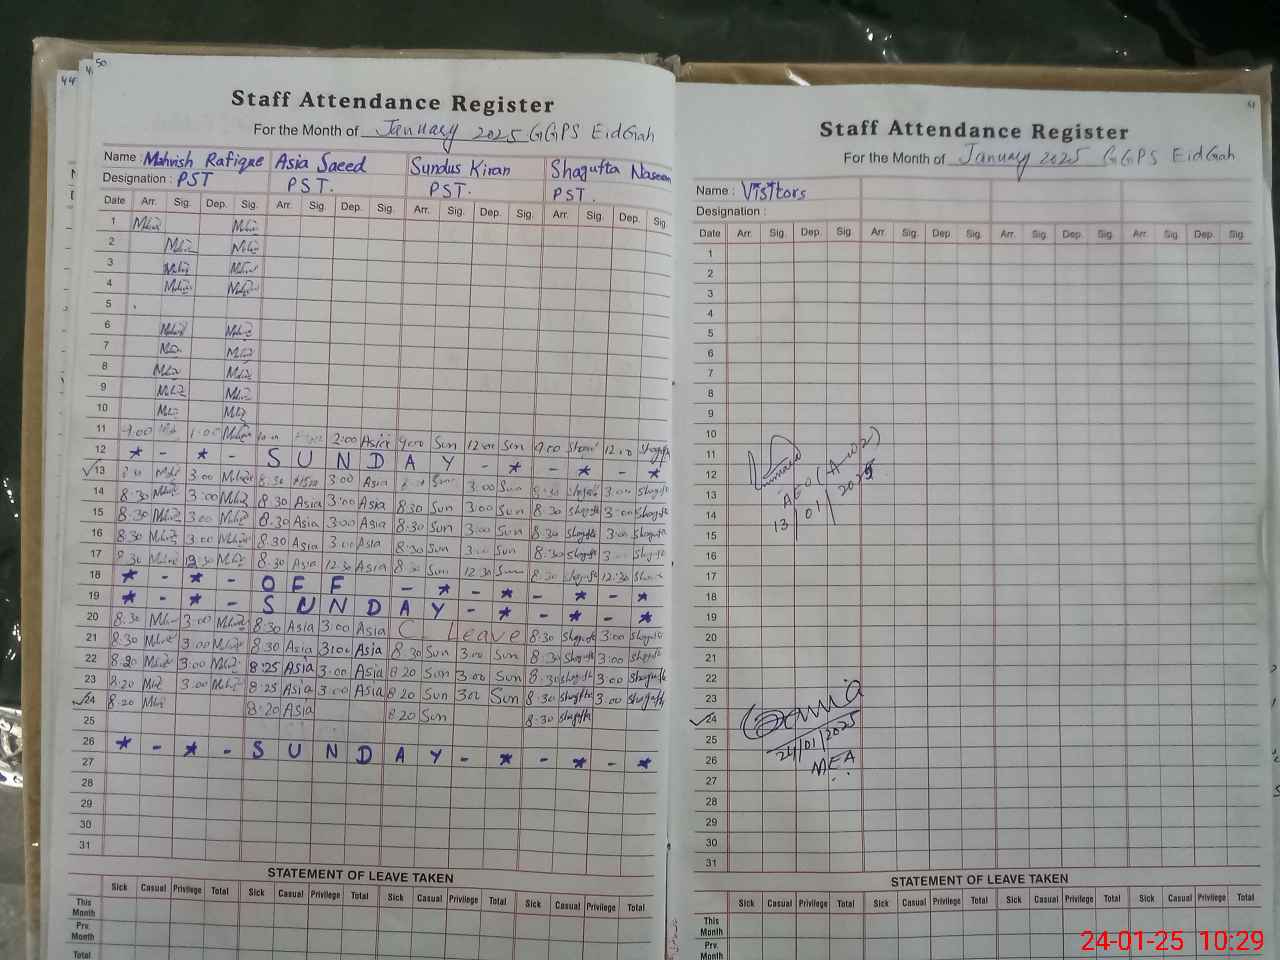 50
Staff Attendance Register
For the Month of January 2025 GGPS EidGah
Name : Mahvish Rafique Asia Saeed Sundus Kiran Shagufta Naseem
Designation : PST PST. PST. PST.
Date Arr. Sig. Dep. Sig. Arr. Sig. Dep. Sig. Arr. Sig. Dep. Sig. Arr. Sig. Dep. Sig.
1
2
3
4
5
6
7
8
9
10
11 9:00 1:00 2:00 Asia 9:00 Sun 12:00 Sun 9:00 12:00 Shagufta
12 * - * - S U N D A Y - * - * - *
13 3:00 8:30 Asia 3:00 Asia Sun 3:00 Sun 8:30 Shagufta 3:00 Shagufta
14 8:30 3:00 8.30 Asia 3:00 Asia 8:30 Sun 3:00 Sun 8:30 Shagufta 3:00 Shagufta
15 8:30 3:00 8.30 Asia 3:00 Asia 8:30 Sun 3:00 Sun 8:30 Shagufta 3:00 Shagufta
16 8:30 3:00 8.30 Asia 3:00 Asia 8:30 Sun 3:00 Sun 8:30 Shagufta 3:00 Shagufta
17 8:30 12:30 8.30 Asia 12:30 Asia 8:30 Sun 12:30 Sun 8:30 Shagufta 12:30
18 * - * - O F F - * - * - * - *
19 * - * - S U N D A Y - * - * - *
20 8:30 3:00 8:30 Asia 3:00 Asia C. Leave 8:30 Shagufta 3:00 Shagufta
21 8:30 3:00 8:30 Asia 3:00 Asia 8:30 Sun 3:00 Sun 8:30 Shagufta 3:00 Shagufta
22 8:20 3:00 8:25 Asia 3:00 Asia 8:20 Sun 3:00 Sun 8:30 Shagufta 3:00 Shagufta
23 8:20 3:00 8:25 Asia 3:00 Asia 8:20 Sun 3:00 Sun 8:30 Shagufta 3:00 Shagufta
24 8:20 8:20 Asia 8:20 Sun 8:30 Shagufta
25
26 * - * - S U N D A Y - * - * - *
27
28
29
30
31
STATEMENT OF LEAVE TAKEN
Sick Casual Privilege Total Sick Casual Privilege Total Sick Casual Privilege Total Sick Casual Privilege Total
This Month
Prv. Month
Total
Staff Attendance Register
For the Month of January 2025 GGPS EidGah
Name : Visitors
Designation :
Date Arr. Sig. Dep. Sig Arr. Sig. Dep. Sig. Arr. Sig. Dep. Sig. Arr. Sig. Dep. Sig.
1
2
3
4
5
6
7
8
9
10
11
12
13 AEO
14 13/01/2025
15
16
17
18
19
20
21
22
23
24
25 24/01/2025
26 MEA
27
28
29
30
31
STATEMENT OF LEAVE TAKEN
Sick Casual Privilege Total Sick Casual Privilege Total Sick Casual Privilege Total Sick Casual Privilege Total
This Month
Prv. Month
24-01-25 10:29